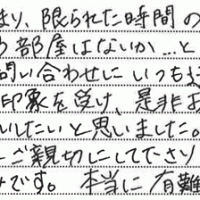 まり、限られた時間の
部屋はないか…と
問い合わせにいつも
印象を受け、是非お
いしたいと思いました。
ご親切にして下さり
です。 本当に有難